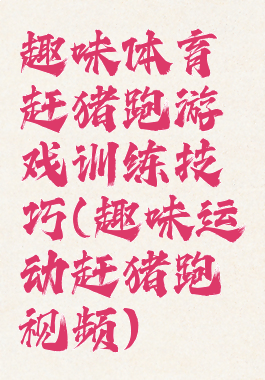 趣味体育
赶猪跑游
戏训练技
巧(趣味运
动赶猪跑
视频)